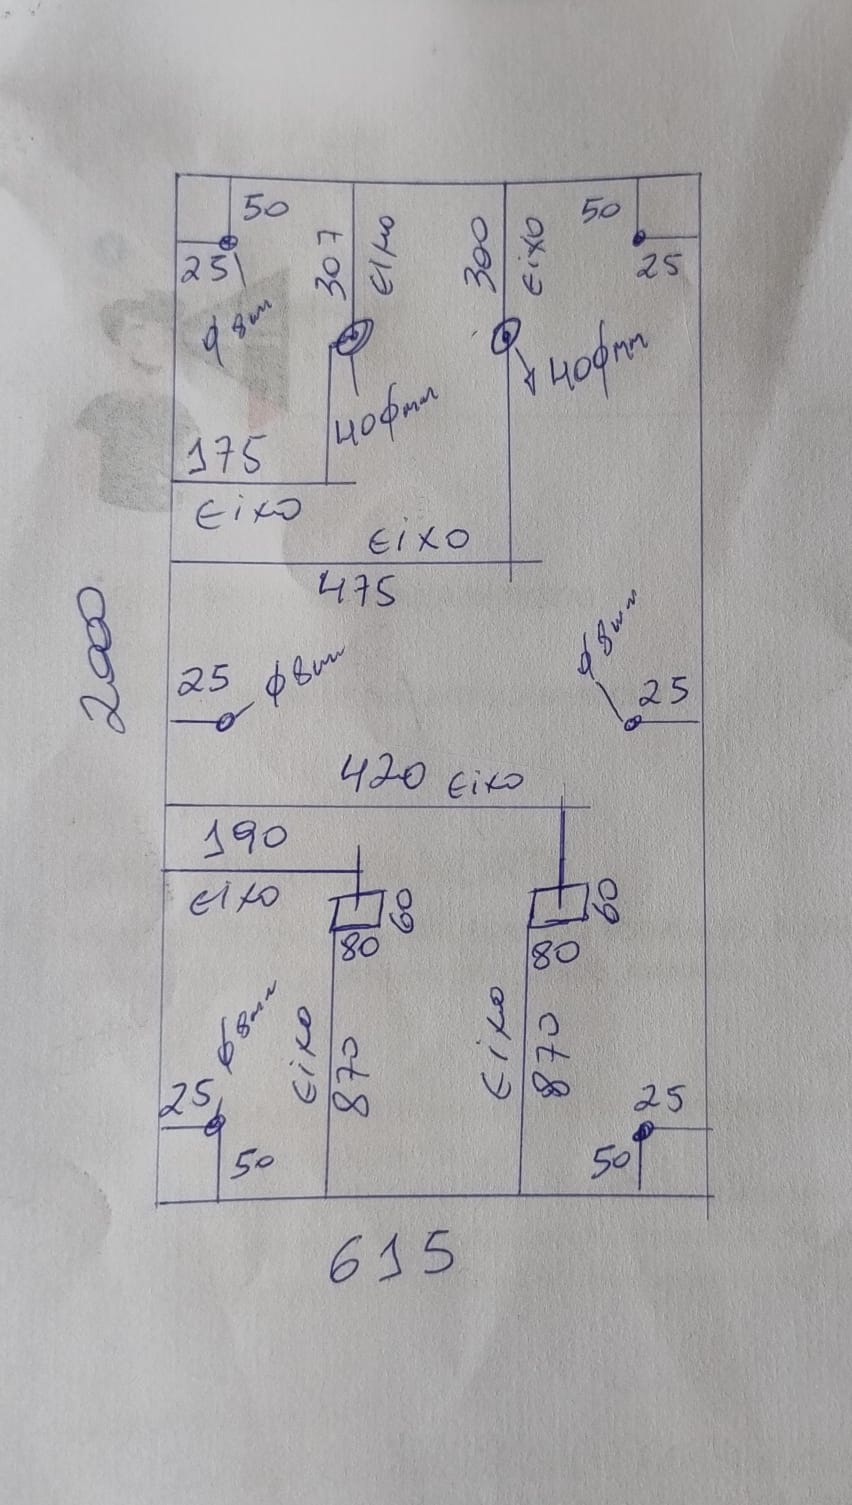 50
307
Eixo
300
Eixo
50
25
ϕ8mm
25
40ϕmm
40ϕmm
175
Eixo
Eixo
475
2000
25
ϕ8mm
ϕ8mm
25
420 Eixo
190
Eixo
80
60
80
60
ϕ8mm
Eixo
870
Eixo
870
25
50
25
50
615